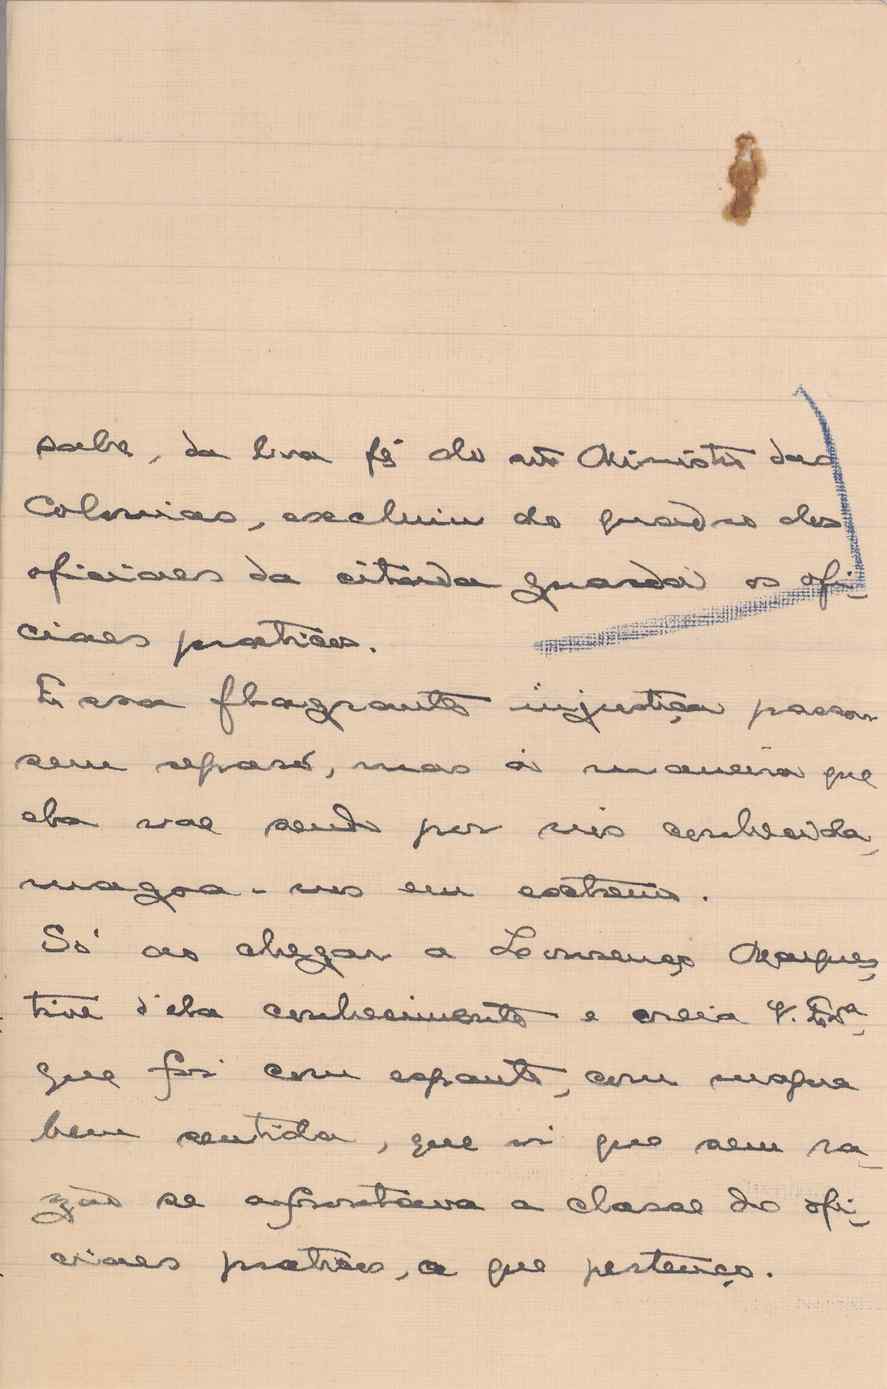 sabe, da boa fé do então Ministro das
Colonias, excluiu do quadro dos
oficiaes da citada guarda os ofi-
ciaes praticos.
Essa flagrante injustiça passou
sem reparo, mas á maneira que
ela vae sendo por nós conhecida,
magoa-nos em extremo.
Só ao chegar a Lourenço Marques,
tive d'ela conhecimento e creia V. Exª,
que foi com espanto, com magua
bem sentida, que vi que sem ra-
zão se afrontava a classe do ofi-
ciaes praticos, a que pertenço.